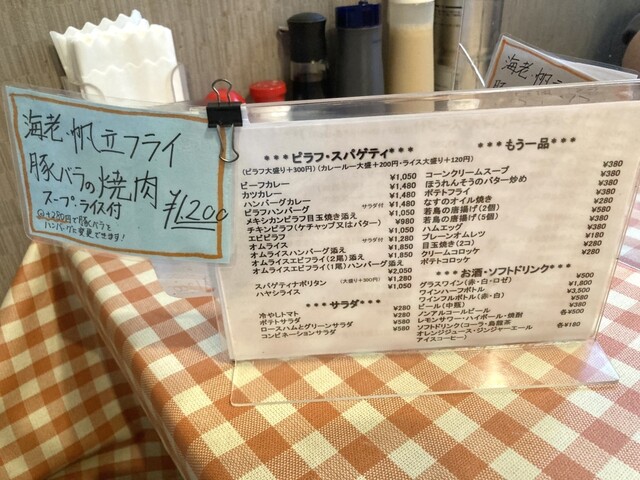 海老・帆立フライ
豚バラの焼肉
スープ、ライス付
¥1,200
海老・帆
***ピラフ・スパゲティ***
(ピラフ大盛り+300円)(カレールー大盛+200円・ライス大盛り+120円)
ビーフカレー ¥1,050
カツカレー ¥1,480
ハンバーグカレー ¥1,480
ピラフハンバーグ サラダ付 ¥1,480
メキシカンピラフ目玉焼き添え ¥1,050
チキンピラフ(ケチャップ又はバター) ¥980
エビピラフ ¥1,050
オムライス サラダ付 ¥1,280
オムライスハンバーグ添え ¥1,850
オムライスエビフライ(2尾)添え
オムライスエビフライ(1尾)ハンバーグ添え
¥2,050
スパゲティナポリタン (大盛り+300円) ¥1,280
ハヤシライス ¥1,050
***サラダ***
冷やしトマト ¥280
ポテトサラダ ¥280
ロースハムとグリーンサラダ ¥580
コンビネーションサラダ ¥580
***もう一品
コーンクリームスープ ¥380
ほうれんそうのバター炒め ¥380
ポテトフライ
なすのオイル焼き
若鳥の唐揚げ(2個)
若鳥の唐揚げ(5個)
ハムエッグ
プレーンオムレツ
目玉焼き(2コ)
クリームコロッケ
ポテトコロッケ
***お酒・ソフトドリンク***
グラスワイン(赤・白・ロゼ) ¥500
ワインハーフボトル ¥1,800
ワインフルボトル(赤・白) ¥3,500
ビール(中瓶) ¥580
ノンアルコールビール ¥380
レモンサワー・ハイボール・焼酎 各¥500
ソフトドリンク(コーラ・烏龍茶
オレンジジュース・ジンジャーエール
アイスコーヒー) 各¥180